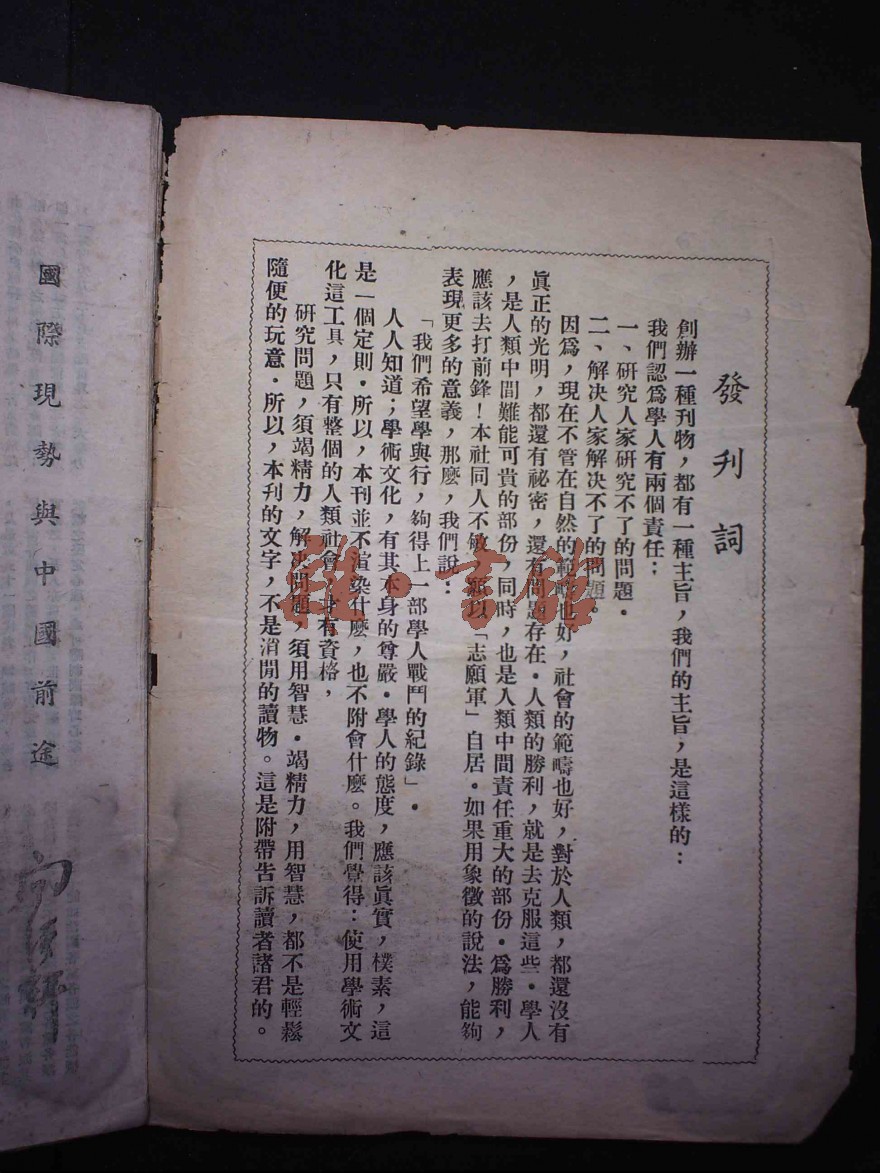 發刋詞
創辦一種刊物，都有一種主旨，我們的主旨，是這樣的：
我們認爲學人有兩個責任；
一、研究人家研究不了的問題．
二、解決人家解決不了的問題。
因爲，現在不管在自然的範疇也好，社會的範疇也好，對於人類，都還沒有
眞正的光明，都還有祕密，還有問題存在．人類的勝利，就是去克服這些．學人
，是人類中間難能可貴的部份，同時，也是人類中間責任重大的部份．爲勝利，
應該去打前鋒！本社同人不敏，願以「志願軍」自居．如果用象徵的說法，能夠
表現更多的意義，那麽，我們說：
「我們希望學與行，夠得上一部學人戰鬥的紀錄」．
人人知道；學術文化，有其本身的尊嚴．學人的態度，應該眞實，樸素，這
是一個定則．所以，本刊並不渲染什麽，也不附會什麽。我們覺得：使用學術文
化這工具，只有整個的人類社會，才有資格，
研究問題，須竭精力，解決問題，須用智慧．竭精力，用智慧，都不是輕鬆
隨便的玩意．所以，本刋的文字，不是消閒的讀物。這是附帶告訴讀者諸君的。
國際現勢與中國前途
段·書館